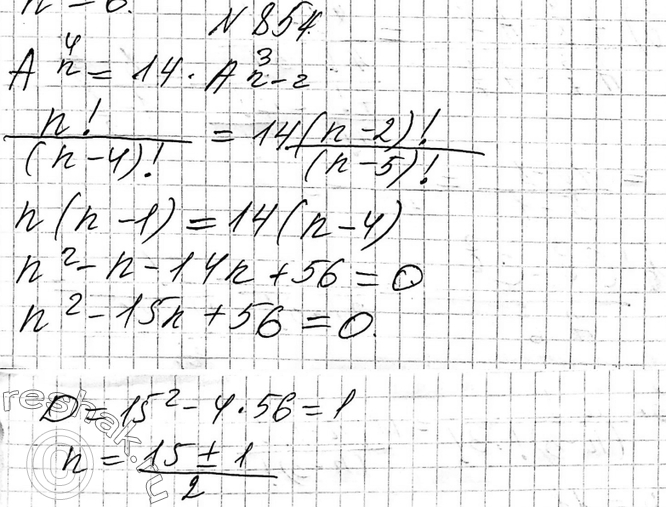 n = 6.
N 854.
A⁴ₙ = 14 · A³ₙ₋₂
n! / (n-4)! = 14(n-2)! / (n-5)!
n(n-1) = 14(n-4)
n² - n - 14n + 56 = 0
n² - 15n + 56 = 0.
D = 15² - 4·56 = 1
n = 15 ± 1 / 2
reshak.ru